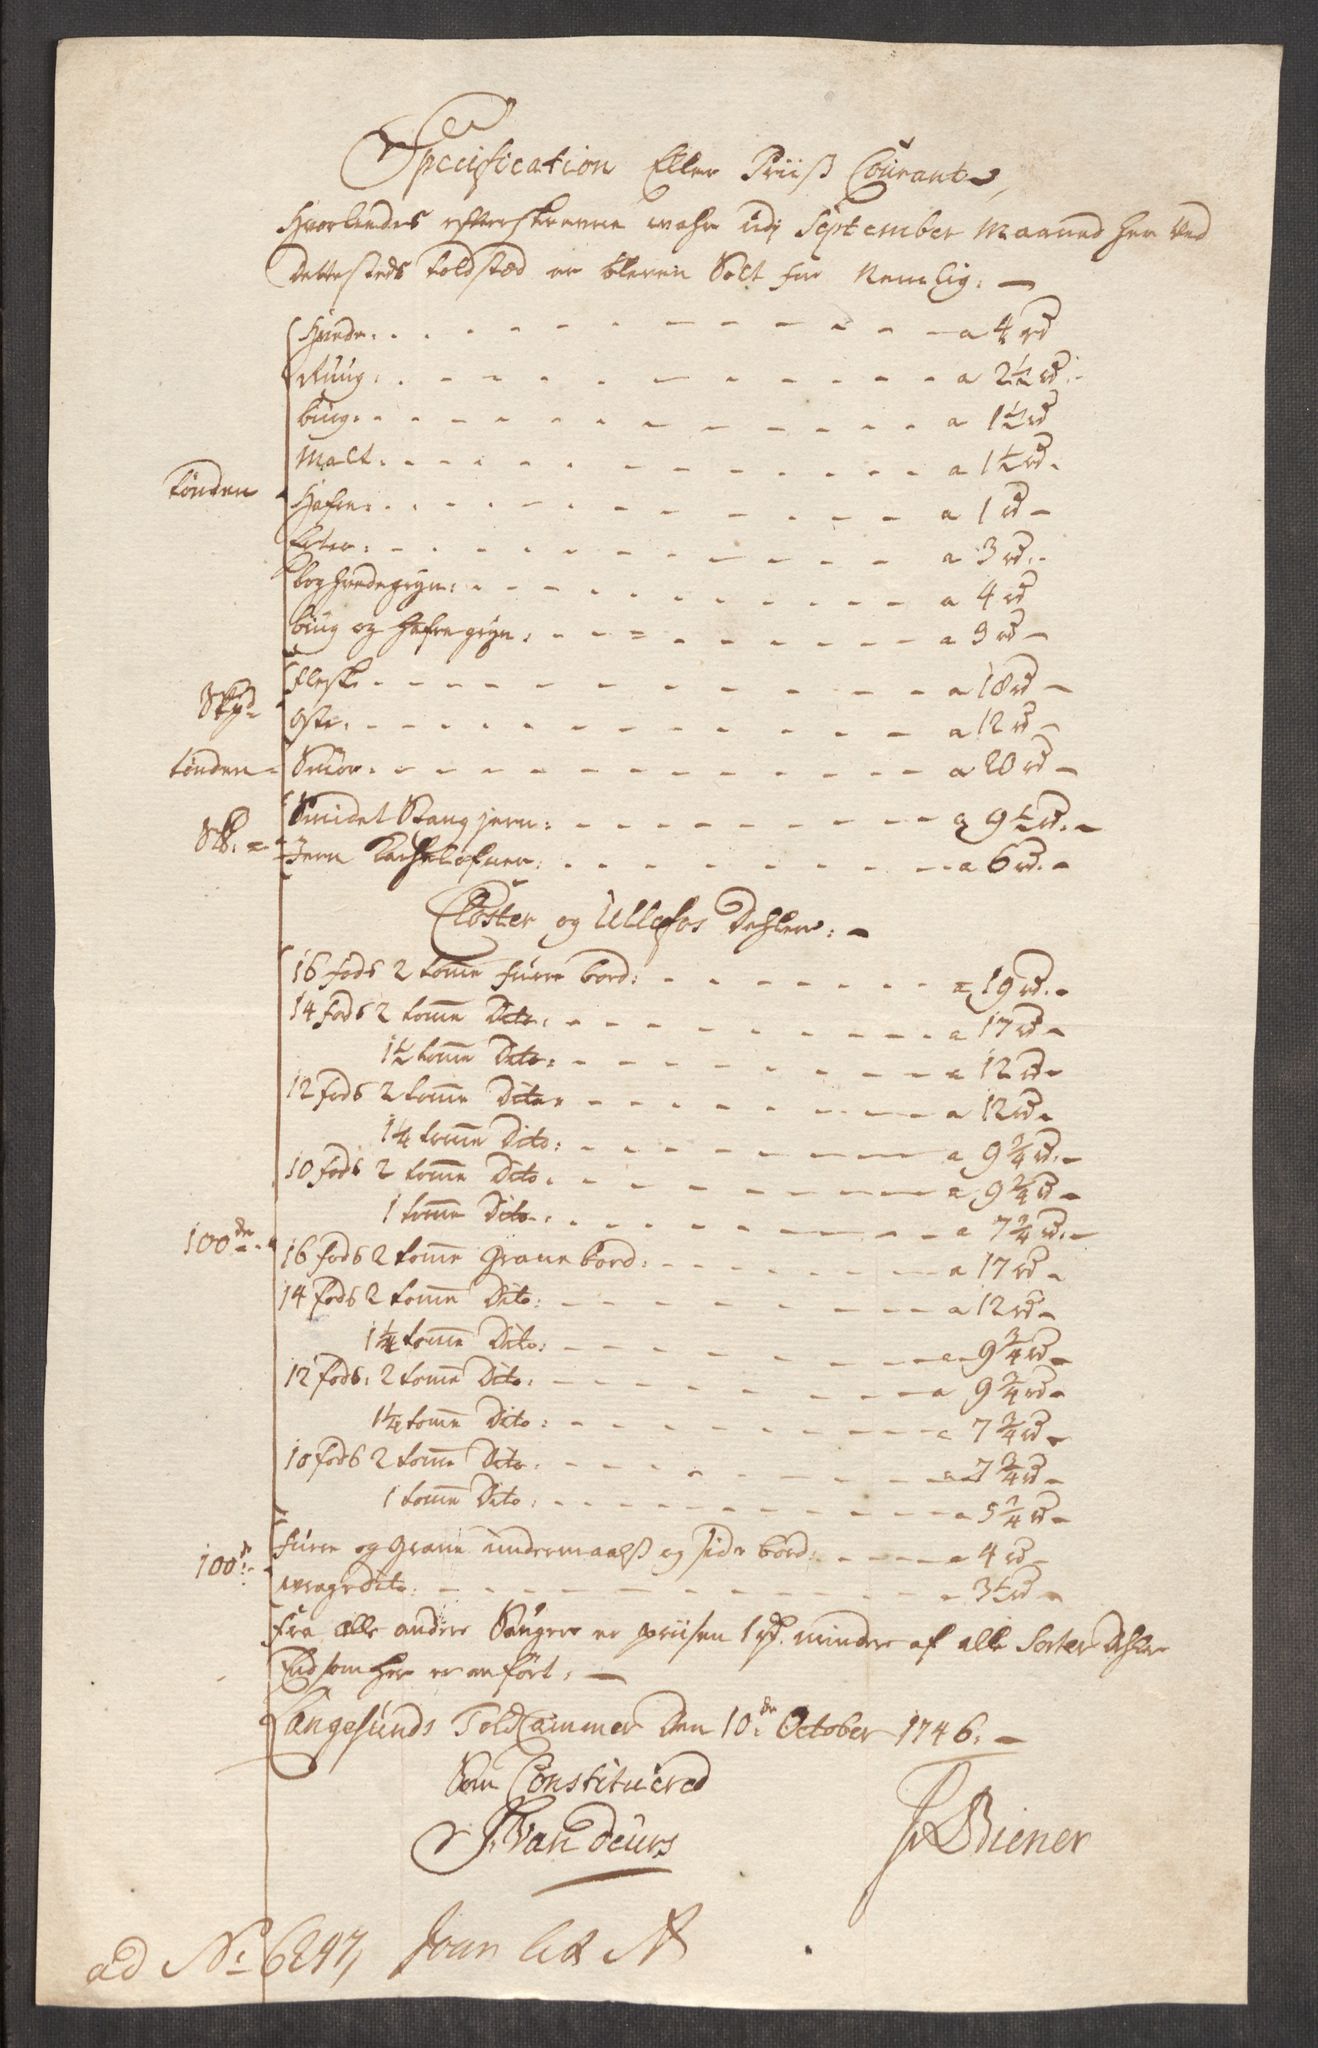 Specification Eller Priiß Courant,
Hvorlendes efterskrevne wahre udj September Maaned her ved
Dettesteds toldsted er bleven Solt for Nemlig:
Hvede: a 4 rd
Rúúg: a 2½ rd
búúg: a 1½ rd
Malt: a 1½ rd
tønden
Hafre: a 1 rd
Erter: a 3 rd
boghvedegrÿn: a 4 rd
búúg og Hafregrÿn: a 3 rd
Flesk: a 18 rd
Skpd
Oste: a 12 rd
tønden Smör: a 20 rd
Smidet Stang jern: a 9½ rd
Sk:
Jern Kachelofner: a 6 rd
Closter og Ullefos Dehler:
16 fods 2 tomme fúrre bord: a 19 rd
14 fods 2 tomme Dito: a 17 rd
1½ tomme Dito: a 12 rd
12 fods 2 tomme Dito a 12 rd
1¼ tomme Dito: a 9¾ rd
10 fods 2 tomme Dito: a 9¾ rd
1 tomme Dito: a 7¾ rd
100de
16 fods 2 tomme Grane bord: a 17 rd
14 fods 2 tomme Dito: a 12 rd
1¼ tomme Dito: a 9¾ rd
12 fods: 2 tomme Dito: a 9¾ rd
1¼ tomme Dito: a 7¾ rd
10 fods 2 tomme Dito: a 7¾ rd
1 tomme Dito: a 5¾ rd
fúrre og Grane úndermaalß og side bord: a 4 rd
100de
wrage dito: a 3½ rd
Fra alle andre Sauger er priisen 1 rd. mindre af alle Sorter Dehler
End som her er anført:
Langesúnds ToldCammer Den 10de October 1746:
Som Constitúered
P. Van Deurs
Biener
ad No: 6247, Joan